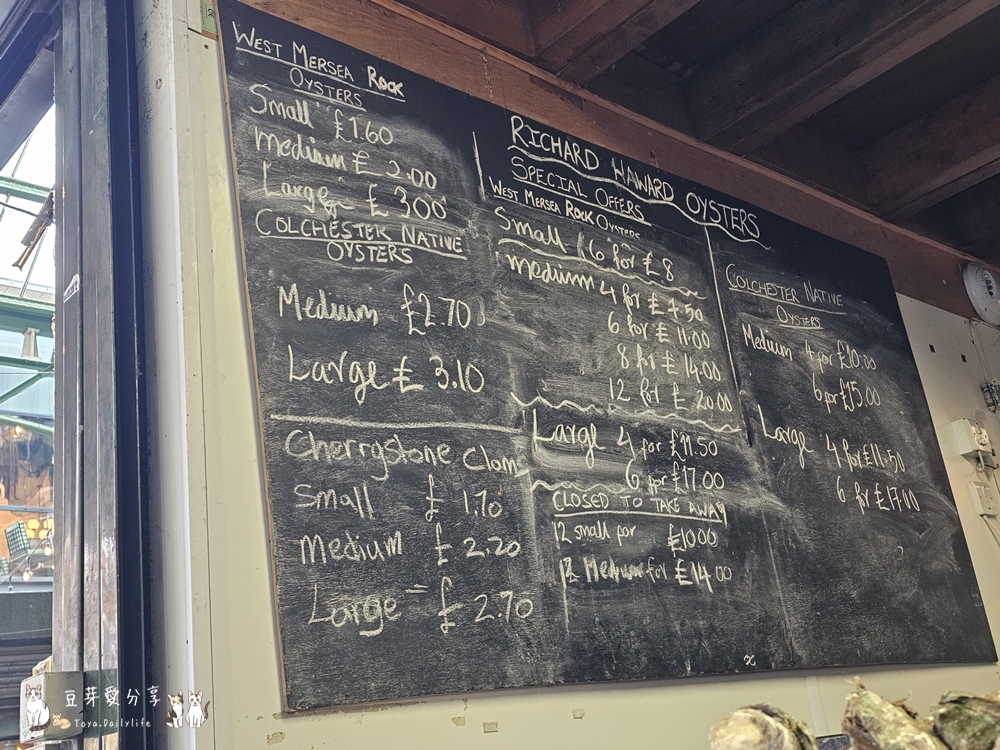 WEST MERSEA ROCK
OYSTERS
Small £1.60
medium £ 2.00
Large £ 300
COLCHESTER NATIVE
OYSTERS
Medium £2.70
Large £ 3.10
Cherrystone Clam
Small £ 1.70
Medium £ 2.20
Large = £ 2.70
RICHARD HAWARD OYSTERS
SPECIAL OFFERS
WEST MERSEA ROCK OYSTERS
Small 6 for £8
medium 4 for £ 7.50
6 for £ 11.00
8 for £ 14.00
12 for £ 20.00
Large 4 for £11.50
6 for £17.00
CLOSED TO TAKE AWAY
12 small for £1000
12 Medium for £14.00
COLCHESTER NATIVE
OYSTERS
Medium 4 for £10.00
6 for £15.00
Large 4 for £11.50
6 for £17.00
豆芽愛分享
Toya.Dailylife